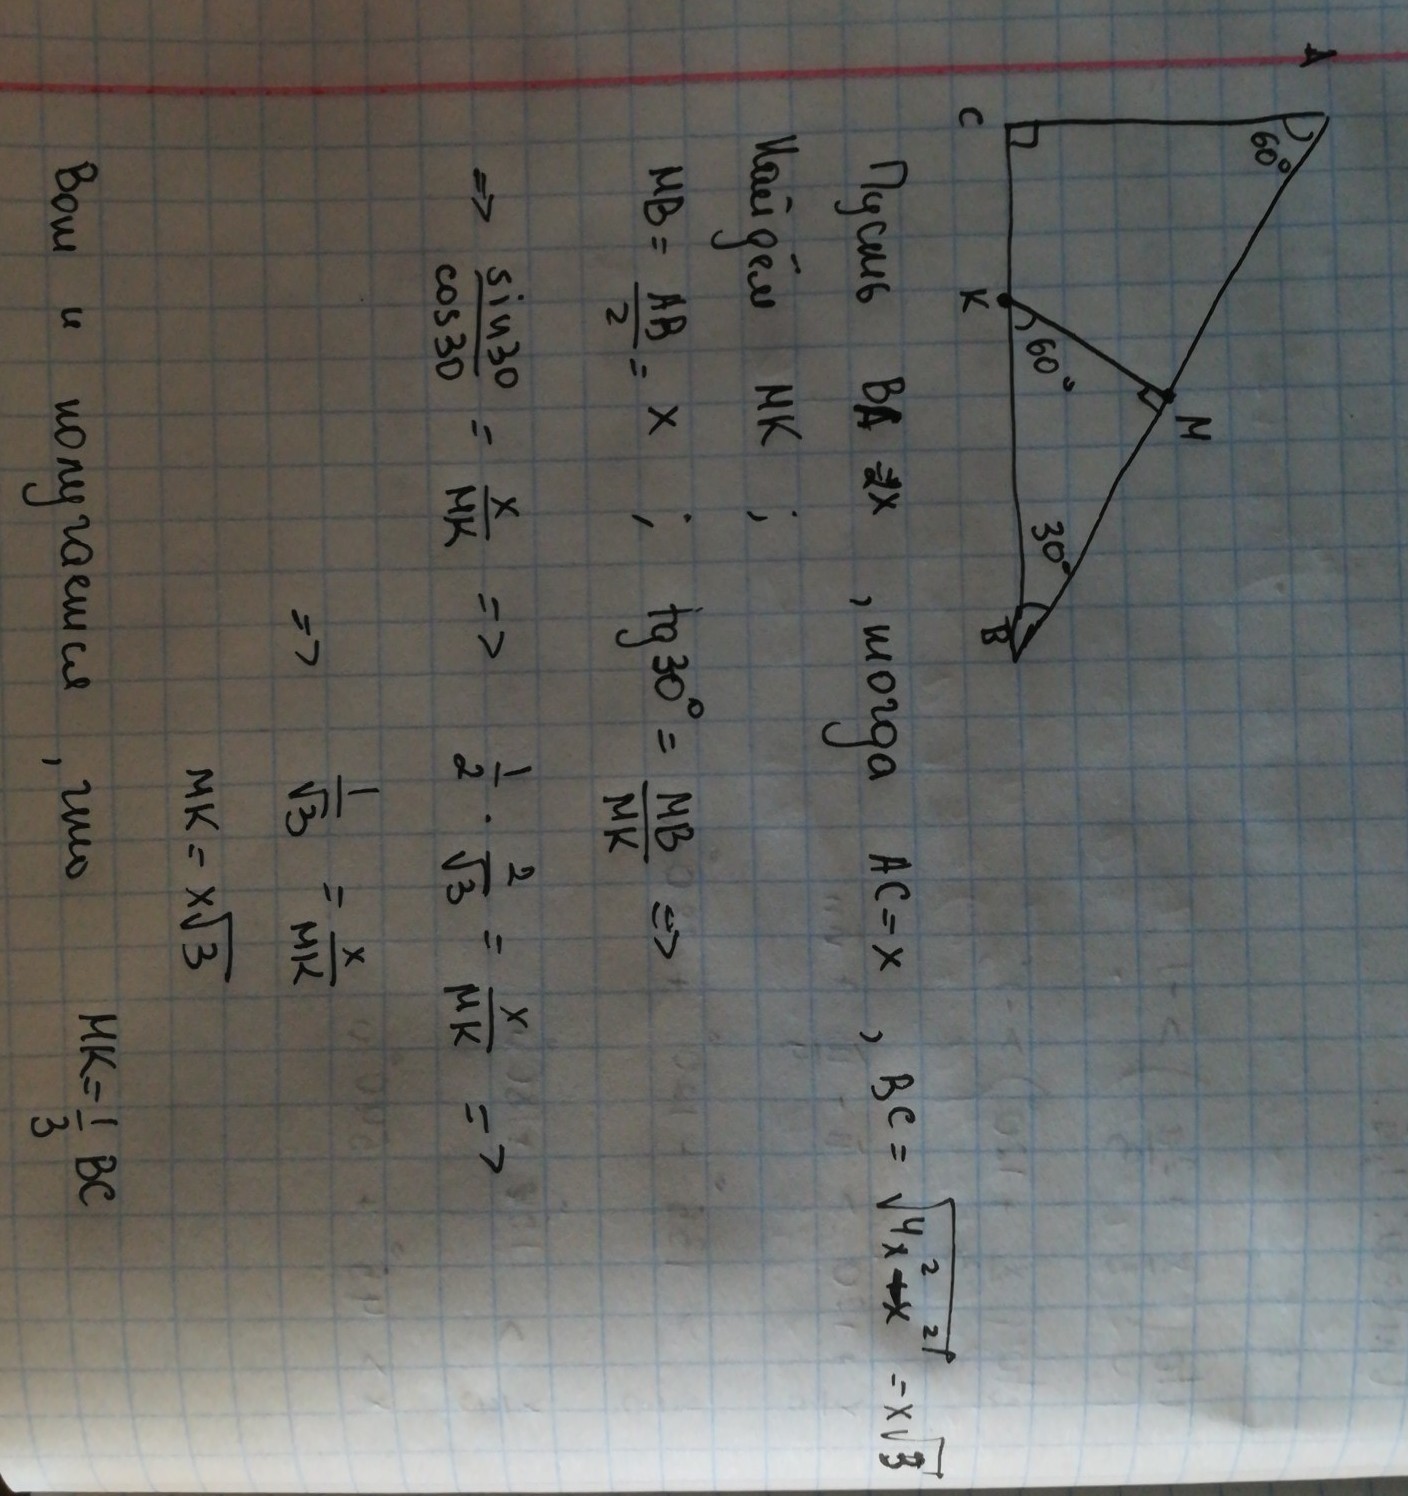 A
60°
C
K
60°
M
30°
B
Пусть BA = 2x, тогда AC = x, BC = √(4x² - x²) = x√3
Найдём MK;
MB = AB/2 = x ; tg30° = MB/MK =>
=> sin30/cos30 = x/MK => 1/2 · 2/√3 = x/MK =>
=> 1/√3 = x/MK
MK = x√3
Вот и получается, что MK = 1/3 BC